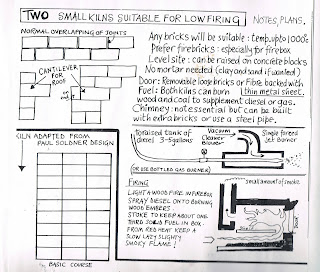 TWO SMALL KILNS SUITABLE FOR LOW FIRING NOTES, PLANS.
NORMAL OVERLAPPING OF JOINTS
CANTILEVER FOR ROOF
on end
Any bricks will be suitable : temp up to 1000°c
Prefer firebricks : especially for firebox
Level site : can be raised on concrete blocks
No mortar needed (clay and sand if wanted)
Door: Removable loose bricks or Fibre backed with
Fuel: Both kilns can burn thin metal sheet.
wood and coal to supplement diesel or gas.
Chimney: not essential but can be built
with extra bricks or use a steel pipe.
KILN ADAPTED FROM
PAUL SOLDNER DESIGN
BASIC COURSE
to raised tank of
diesel 3-5 gallons
Vacuum
Cleaner
Blower
Simple forced
jet burner
(OR USE BOTTLED GAS BURNER)
FIRING
LIGHT A WOOD FIRE IN FIREBOX
SPRAY DIESEL ONTO BURNING
WOOD EMBERS
STOKE TO KEEP ABOUT ONE
THIRD SOLID FUEL IN BOX
FROM RED HEAT KEEP A
SLOW LAZY SLIGHTY
SMOKY FLAME!
small amount of smoke.